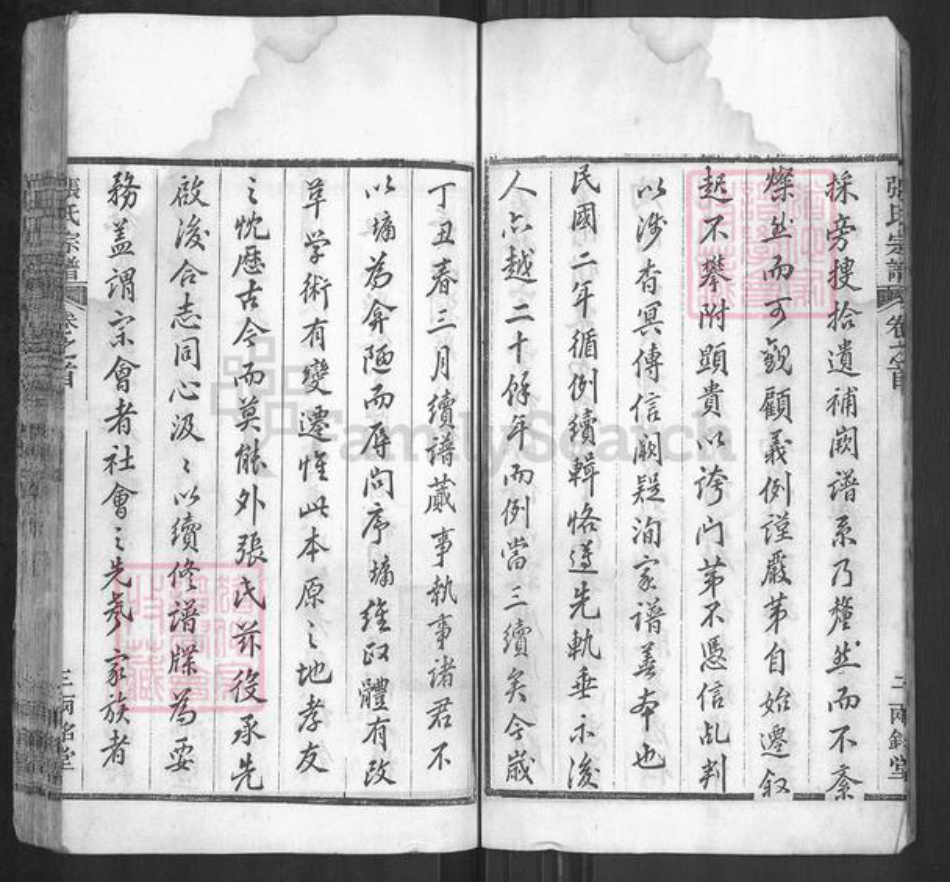 張氏宗譜 卷之首 二 兩銘堂
採旁搜拾遺補闕譜系乃釐然而不紊
燦然而可觀顧義例謹嚴第自始遷叙
起不攀附顯貴以誇門第不憑信乩判
以涉杳冥傳信闕疑洵家譜善本也
民國二年循例續輯恪遵先軌垂示後
人亦越二十餘年而例當三續矣今歲
丁丑春三月續譜蕆事執事諸君不
以墉為弇陋而辱問序墉維政體有改
革學術有變遷惟此本原之地孝友
之忱歷古今而莫能外張氏兹役承先
啟後合志同心汲〻以續修譜牒為要
務蓋謂宗會者社會之先務家族者
張氏宗譜 卷之首 三 兩銘堂
FamilySearch